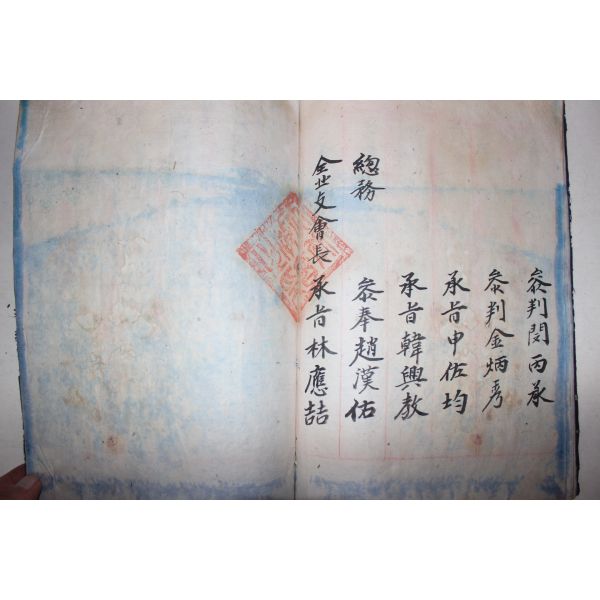 參判閔丙承
參判金炳秀
承旨申佐均
承旨韓興敎
總務 參奉趙漢佑
仝支會長 承旨林應喆